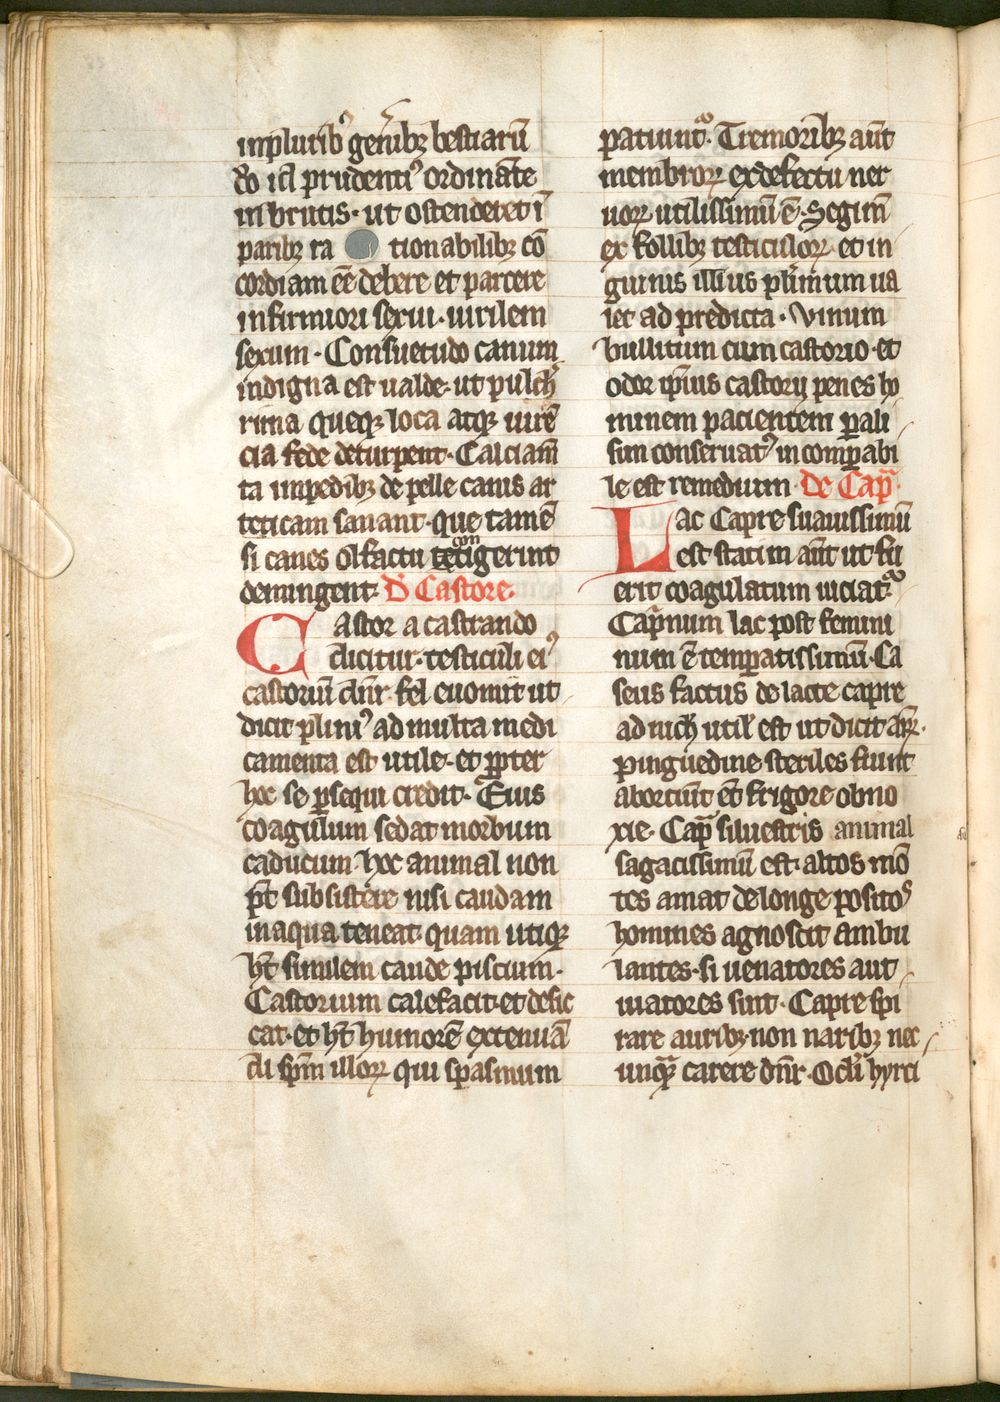 inplurib⁹ gen̾ibꝫ bestiarū
d̾o id prudenti⁹ ordinat̄e
in brutis · ut ostenderet ī
paribꝫ ra tionabilibꝫ cō
cordiam eē debere et parcere
infirmiori sexui · uirilem
sexum · Consuetudo canum
indigna est ualde · ut pulch̾
rima queqꝫ loca atqꝫ uirē
cia fede deturpent · Calciam̄
ta inpedibꝫ de pelle canis ar
teticam sanant · que tamē
si canes olfactu con tetigerint
demingent · D̄ Castore ·
Castor a castrando
dicitur · testiculi ei⁹
castoriū dn̄r · fel euomit ut
dicit plini⁹ ad multa medi
camenta est utile · et ꝓpter
hoc se ꝑsequi credit · Eius
coagulum sedat morbum
caducum · hoc animal non
pt̄ subsistere nisi caudam
in aqua teneat · quam utiqꝫ
ht̄ similem caude piscium ·
Castorium calefacit · et desic
cat · et ht̄ humorē extenuā
di spm̄ illoꝝ qui spasmum
patiunt̾ᷓ · Tremoribꝫ aūt
membroꝝ ex defectu ner
uoꝝ utilissimū ē · Segim̄
ex follibꝫ testiculoꝝ et in
guinis illius pl̾imum ua
let ad predicta · Vinum
bullitum cum castorio · et
odor ipīus castorij penes ho
minem pacientem ꝑali
sim conseruat⁹ in comꝑabi
le est remedium · de Capᷓ ·
Lac Capre suauissimū
est statim aūt ut fu
erit coagulatum uiciat̾ᷓ ·
Cap̾num lac post femini
num ē temꝑatissimū · Ca
seus factus de lacte capre
ad nich̾ util̾ est ut dicit ar̄ ·
pinguedine steriles fiunt
abortiūt et̄ frigore obno
xie · Capᷓ siluestris animal
sagacissimū est · altos mō
tes amat de longe posito⁹
homines agnoscit ambu
lantes · si uenatores aut
uiatores sint · Capre spi
rare auribꝫ · non naribꝫ nec
unqᷓ carere dn̄r · Oculi hyrci